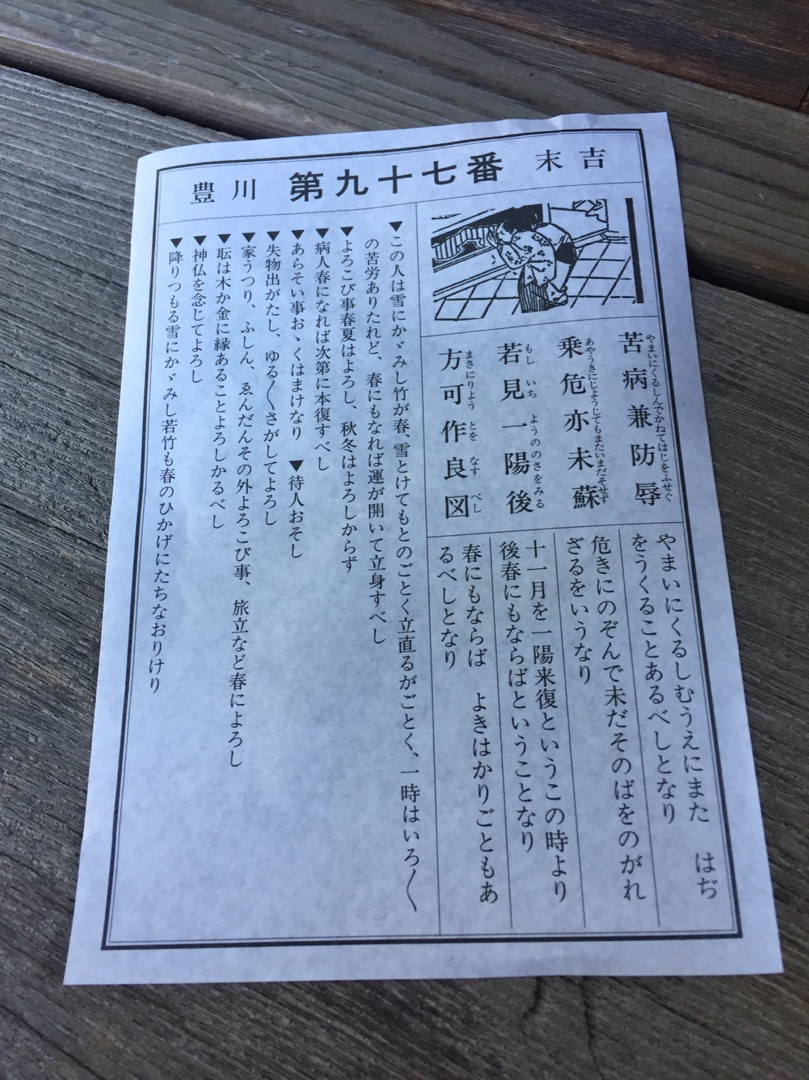 豊川 第九十七番 末吉
やまいにくるしんでかねてはじをふせぐ
苦病兼防辱
あやうきにじようじてもまたいまだそせず
乗危亦未蘇
もし いち ようののさをみる
若見一陽後
まさにりよう とを なす べし
方可作良図
やまいにくるしむうえにまた はぢ
をうくることあるべしとなり
危きにのぞんで未だそのばをのがれ
ざるをいうなり
十一月を一陽来復というこの時より
後春にもならばということなり
春にもならば よきはかりごともあ
るべしとなり
▼この人は雪にかゞみし竹が春、雪とけてもとのごとく立直るがごとく、一時はいろ〱
の苦労ありたれど、春にもなれば運が開いて立身すべし
▼よろこび事春夏はよろし、秋冬はよろしからず
▼病人春になれば次第に本復すべし
▼あらそい事おゝくはまけなり ▼待人おそし
▼失物出がたし、ゆる〱さがしてよろし
▼家うつり、ふしん、ゑんだんその外よろこび事、旅立など春によろし
▼耺は木か金に縁あることよろしかるべし
▼神仏を念じてよろし
▼降りつもる雪にかゞみし若竹も春のひかげにたちなおりけり